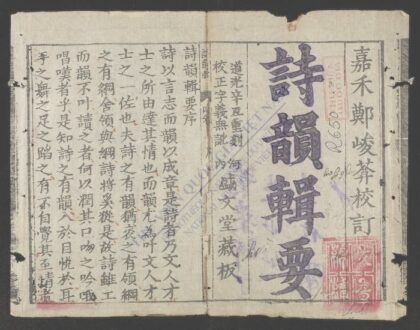 嘉禾鄭峻莽校訂
詩韻輯要
道光辛丑重刻 河
校正字義無訛 內
盛文堂藏板
詩韻輯要序
詩以言志而韻以成章是詩者乃文人才
士之所由達其情也而韻尤為叶文人才
士之一佐也夫詩之有韻猶衣之有領網
之有綱舍領與綱詩將奚從是故詩雖工
而韻不叶讀之者何以潤其口吻之吟哦
唱嘆者乎是知詩之有韻入於目悅於耳
手之舞之足之蹈之有不自覺其至情者